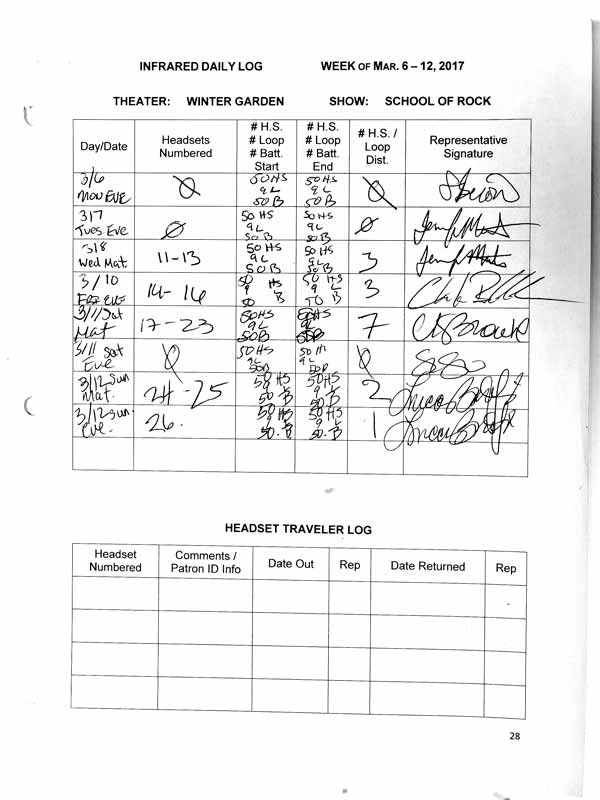 INFRARED DAILY LOG WEEK OF MAR. 6 – 12, 2017
THEATER: WINTER GARDEN SHOW: SCHOOL OF ROCK
Day/Date Headsets Numbered # H.S. # Loop # Batt. Start # H.S. # Loop # Batt. End # H.S. / Loop Dist. Representative Signature
3/6 Mon Eve Ø 50 HS 9 L 50 B 50 HS 9 L 50 B Ø
3/7 Tues Eve Ø 50 HS 9 L 50 B 50 HS 9 L 50 B Ø
3/8 Wed Mat 11-13 50 HS 9 L 50 B 50 HS 9 L 50 B 3
3/10 Fri Eve 14-16 50 HS 9 L 50 B 50 HS 9 L 50 B 3
3/11 Sat Mat 17-23 50 HS 9 L 50 B 50 HS 9 L 50 B 7
3/11 Sat Eve Ø 50 HS 9 L 50 B 50 HS 9 L 50 B Ø
3/12 Sun Mat. 24-25 50 HS 9 L 50.B 50 HS 9 L 50.B 2
3/12 Sun. Eve. 26. 50 HS 9 L 50.B 50 HS 9 L 50.B 1
HEADSET TRAVELER LOG
Headset Numbered Comments / Patron ID Info Date Out Rep Date Returned Rep
28